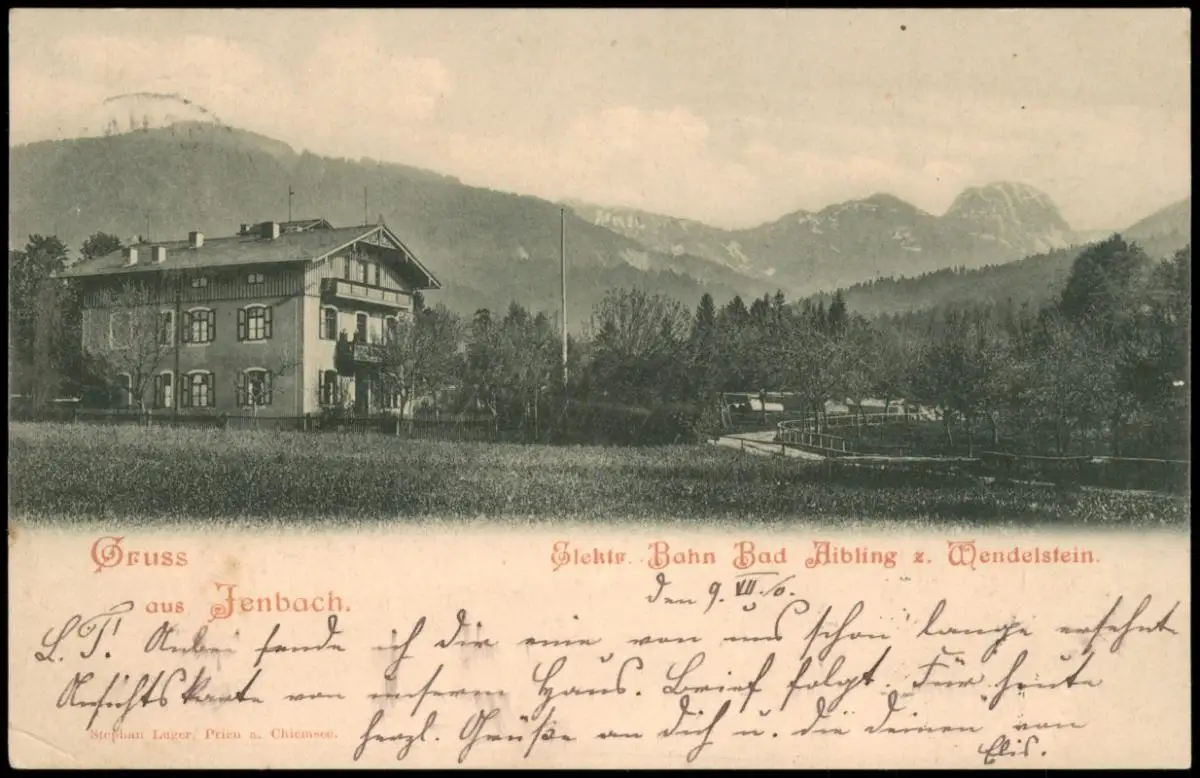 Gruss
aus Jenbach.
Elektr. Bahn Bad Aibling z. Wendelstein.
den 9. VII.
L. T. Anbei sende ich dir eine von uns schon lange ersehnte
Ansichtskarte von unserm Haus. Brief folgt. Für heute
herzl. Grüße an dich u. die deinen von
Elis.
Stephan Luger, Prien a. Chiemsee.